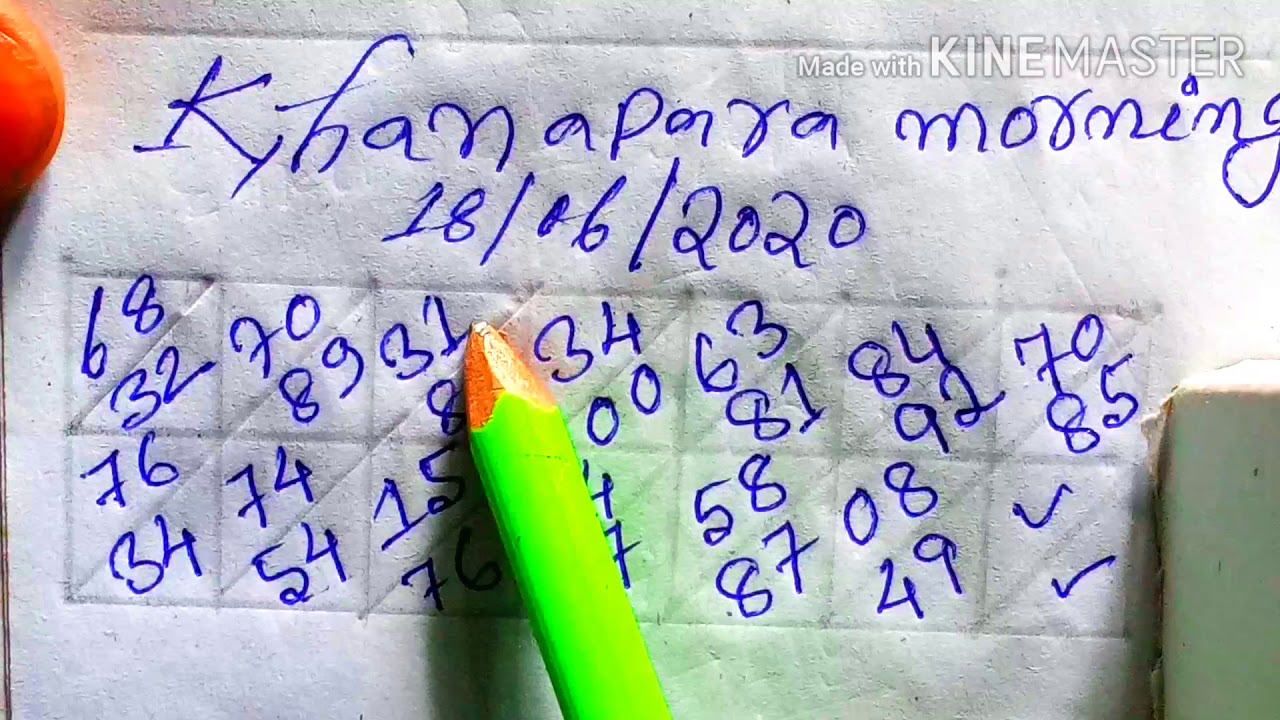 Made with KINEMASTER
Khanapara morning
18/06/2020
68 70 31 34 63 84 70
32 89 8 00 81 92 85
76 74 15 4 58 08 ✓
34 54 76 7 87 49 ✓